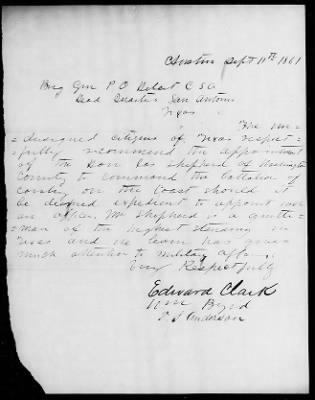 Austin Sept 11th 1861
Brig Gen P O Hebert C S A
Head Quarters San Antonio
Texas
The un=
=dersigned citizens of Texas respect=
=fully recommend the appointment
of the Hon Jas Shepherd of Washington
County to command the battalion of
cavalry on the Coast should it
be deemed expedient to appoint such
an officer. Mr Shepherd is a gentle=
=man of the highest standing in
Texas and we learn has given
much attention to military affairs.
Very Respectfully
Edward Clark
Wm Byrd
P S Anderson